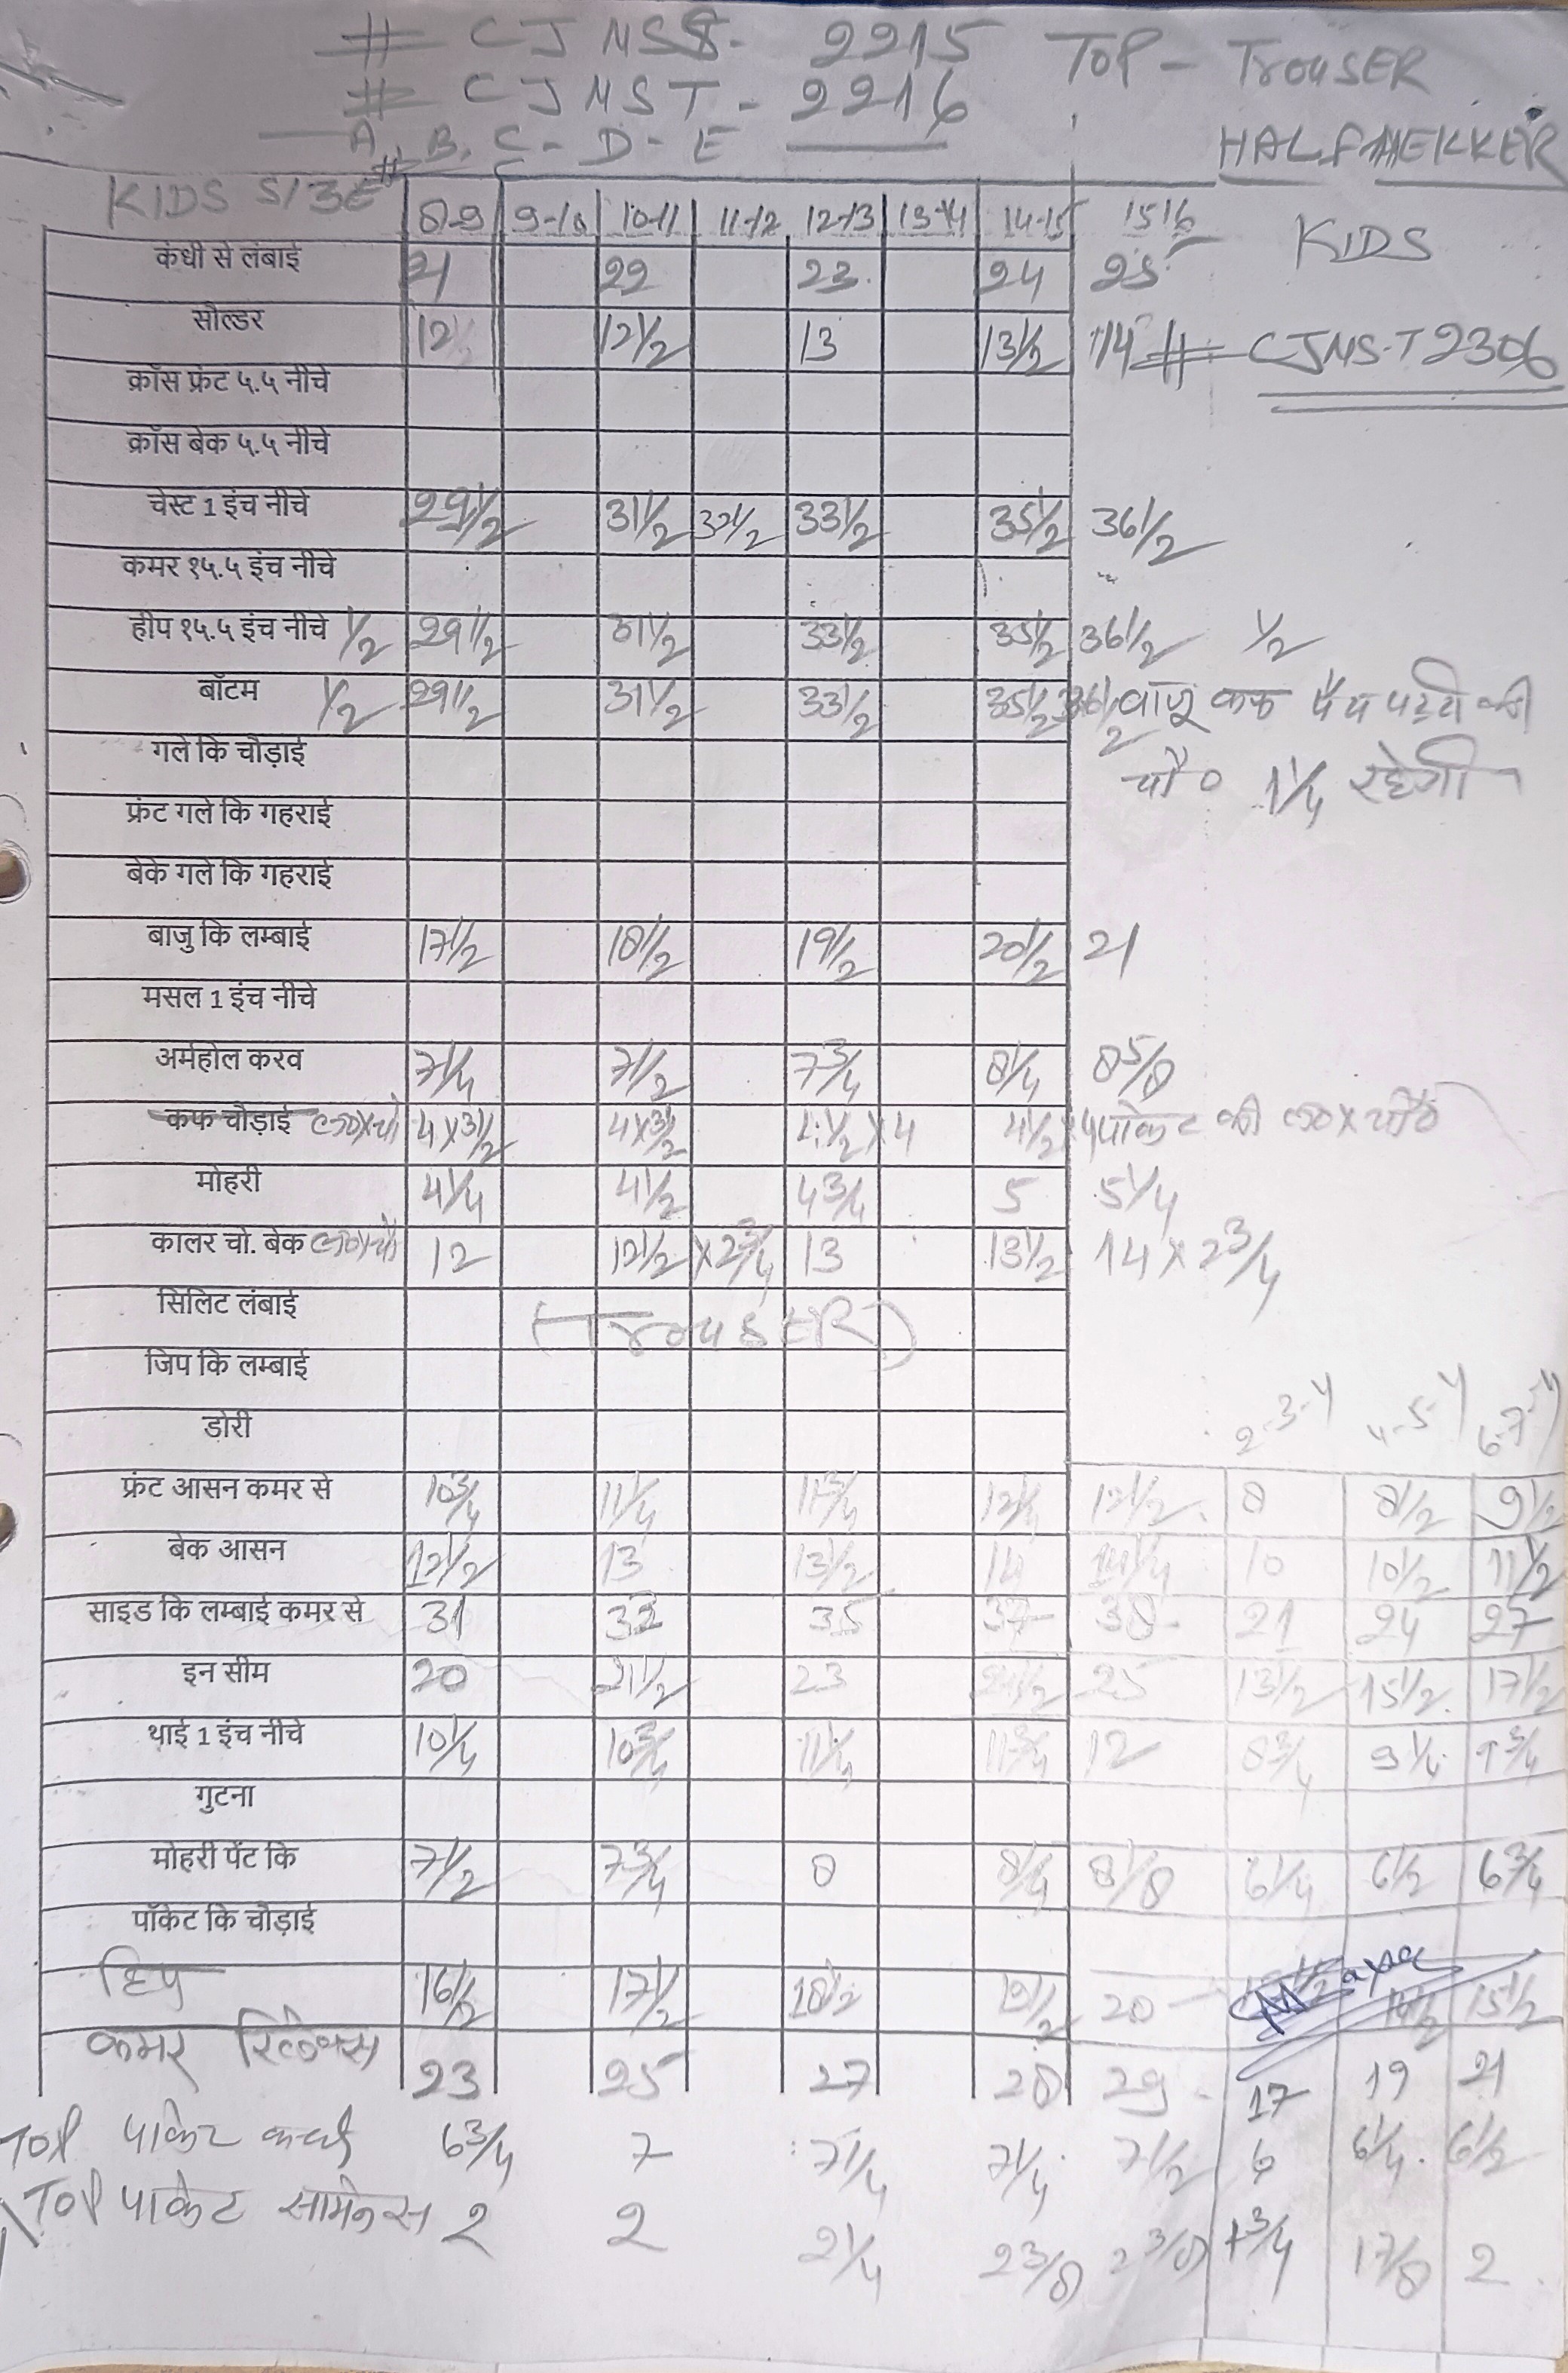 # CJNSS- 2215 TOP - TrouSER
# CJNST - 2216
A, B, C - D - E HALF NEKKER
KIDS SIZE 8-9 9-10 10-11 11-12 12-13 13-14 14-15 15 16 KIDS
कंधी से लंबाई 21 22 23 24 25
सौल्डर 12 12 1/2 13 13 1/2 14 # CJNS-T 2306
क्रॉस फ्रंट ५.५ नीचे
क्रॉस बेक ५.५ नीचे
चेस्ट 1 इंच नीचे 29 1/2 31 1/2 32 1/2 33 1/2 35 1/2 36 1/2
कमर १५.५ इंच नीचे
हीप १५.५ इंच नीचे 1/2 29 1/2 31 1/2 33 1/2 35 1/2 36 1/2 1/2
बॉटम 1/2 29 1/2 31 1/2 33 1/2 35 1/2 36 1/2 बाजू कफ पट्टी की
गले कि चौड़ाई चौ० 1 1/4 रहेगी
फ्रंट गले कि गहराई
बेके गले कि गहराई
बाजु कि लम्बाई 17 1/2 18 1/2 19 1/2 20 1/2 21
मसल 1 इंच नीचे
अर्महोल करव 7 1/4 7 1/2 7 3/4 8 1/4 8 5/8
कफ चौड़ाई ल०×चौ 4×3 1/2 4×3 1/2 4 1/2×4 4 1/2×4 पॉकेट की ल०×चौ०
मोहरी 4 1/4 4 1/2 4 3/4 5 5 1/4
कालर चो. बेक ल०×चौ 12 12 1/2 ×2 3/4 13 13 1/2 14 × 2 3/4
सिलिट लंबाई (TrouSER)
जिप कि लम्बाई
डोरी 2-3-Y 4-5-Y 6-7-Y
फ्रंट आसन कमर से 10 3/4 11 1/4 11 3/4 12 1/4 12 1/2 8 8 1/2 9 1/2
बेक आसन 12 1/2 13 13 1/2 14 14 1/4 10 10 1/2 11 1/2
साइड कि लम्बाई कमर से 31 33 35 37 38 21 24 27
इन सीम 20 21 1/2 23 24 1/2 25 13 1/2 15 1/2 17 1/2
थाई 1 इंच नीचे 10 1/4 10 3/4 11 1/4 11 3/4 12 8 3/4 9 1/4 9 3/4
गुटना
मोहरी पेंट कि 7 1/2 7 3/4 8 8 1/4 8 1/8 6 1/4 6 1/2 6 3/4
पॉकेट कि चौड़ाई
हिप 16 1/2 17 1/2 18 1/2 19 1/2 20 14 1/2 15 1/2
कमर रिलेक्स 23 25 27 28 29 17 19 21
TOP पाकेट 6 3/4 7 7 1/4 7 1/4 7 1/2 6 6 1/4 6 1/2
TOP पाकेट 2 2 2 1/4 2 3/8 2 3/8 1 3/4 1 7/8 2